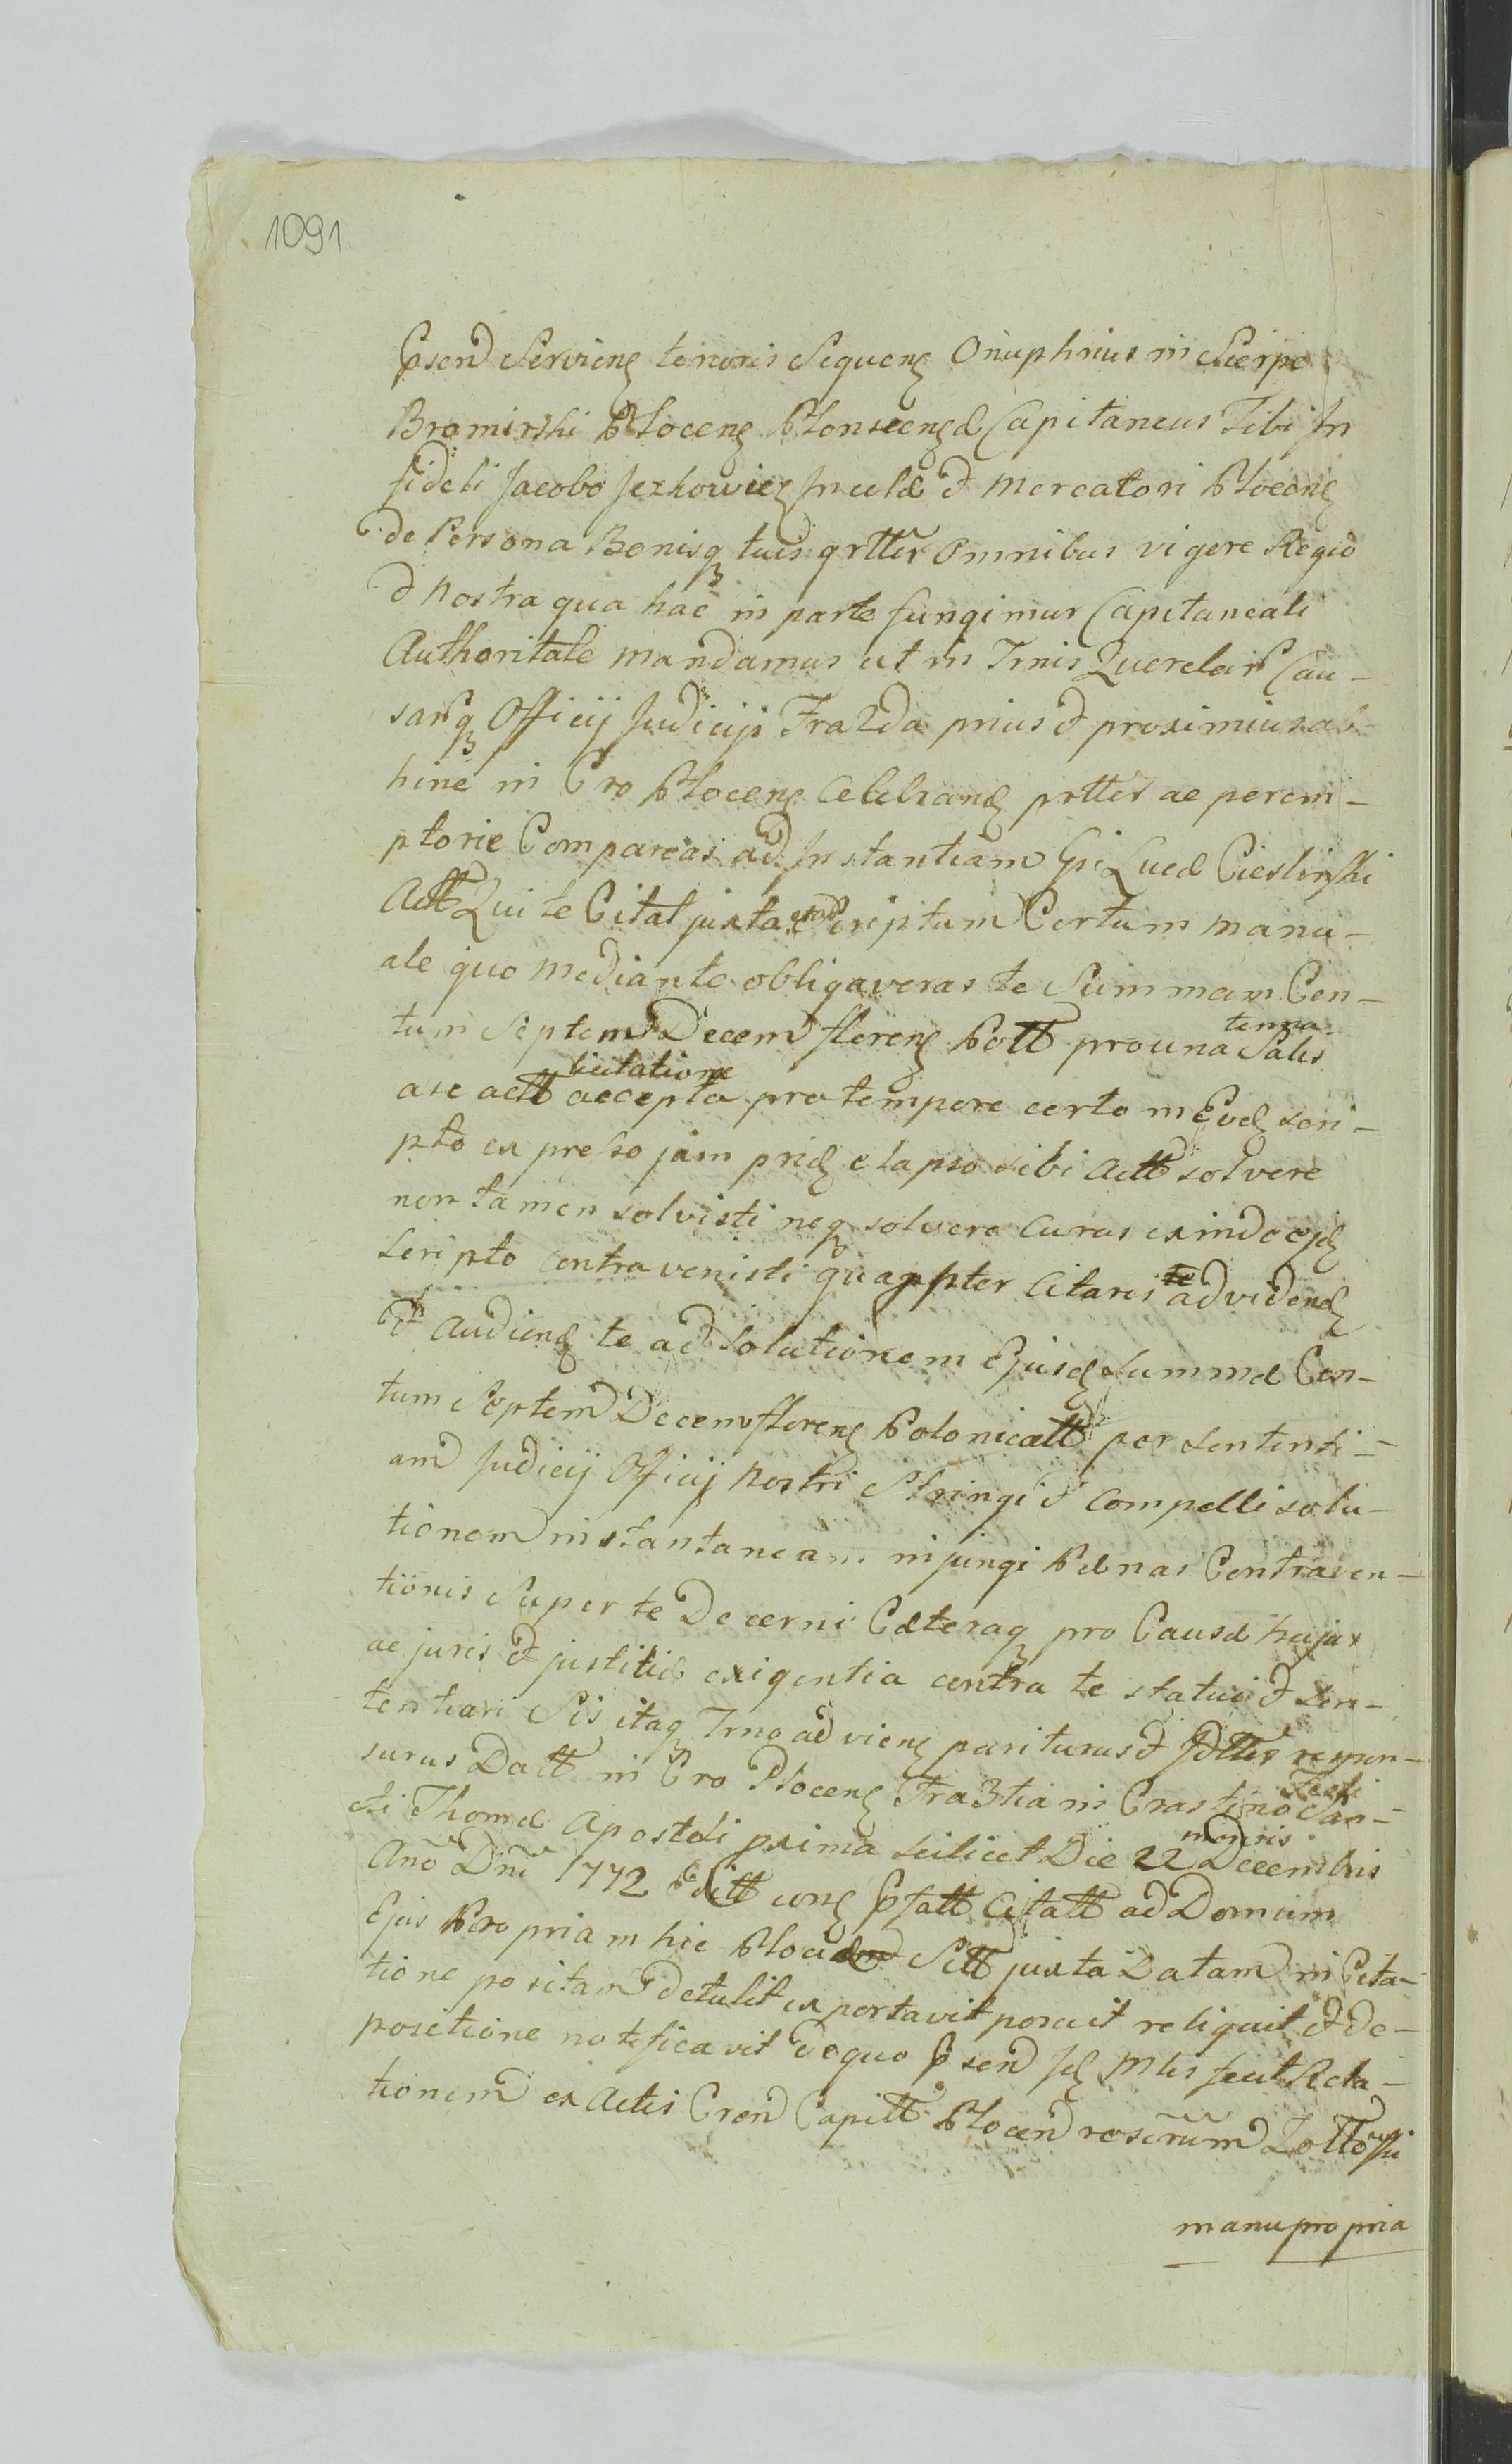 1091
Psend Serviens tenoris Sequens Onuphrius in Sierpc
Bromirski Płocens Płonscensq Capitaneus Tibi In
fideli Jacobo Jezkowicz Incolæ & Mercatori Płocens
de Persona Bonisq tuis grtter omnibus vigore Regio
& nostra qua hac in parte fungimur Capitaneali
Authoritate mandamus ut in Tmis Querelar Cau-
sarq Officij Judicijs Fra 2da prius & proximius ab-
hinc in Cro Płocens Celebrand prtter ac perem-
ptorie Compareas ad Instantiam Gi Lucæ Cieslinski
Actt Qui te Citat juxta Scriptum Certum manu-
ale quo mediante obligaveras te Summam Cen-
tum Septem Decem florens Poll pro una tonna Salis
a se actt licitatione accepta pro tempore certo in Eod scri-
pto expresso jam prid elapso sibi Actt solvere
non tamen solvisti neq solvere curas exinde ejd
Scripto contravenisti quappter Citaris te ad vidend
& audiend te ad Solutionem Ejusd Summæ Cen-
tum Septem Decem florens Polonicatt per Sententi-
am Judicij Officij Nostri Stringi & compelli solu-
tionem instantaneam injungi Pænas Contraven-
tionis Super te Decerni Cæteraq pro Causæ hujus
ac juris & justitiæ exigentia contra te statui & sen-
tentiari Sis itaq Tmo adviens pariturus & Jdtter respon-
surus Datt in Cro Płocens Fra 3tia in Crastino Festi San-
cti Thomæ Apostoli proxima scilicet Die 22 mensis Decembris
Ano Dni 1772 Editt cons Pfatt Citatt ad Domum
Ejus Propriam hic Płociæ Sitt juxta Datam in Cita-
tione positam detulit exportavit posuit reliquit & de-
positione notificavit de quo Psend Jd Mlis fecit Rela-
tionem ex Actis Cren Capitt Płocen
manu propria